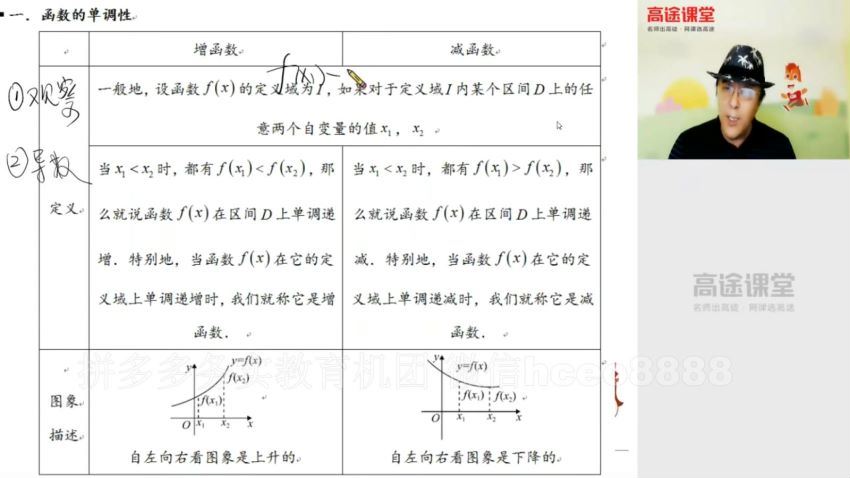 一．函数的单调性
高途课堂
名师出高徒·网课选高途
增函数
减函数
f(x₁)-
①观察
②导数
一般地，设函数 f(x) 的定义域为 I，如果对于定义域 I 内某个区间 D 上的任
意两个自变量的值 x₁，x₂
定义
当 x₁ < x₂ 时，都有 f(x₁) < f(x₂)，那
么就说函数 f(x) 在区间 D 上单调递
增．特别地，当函数 f(x) 在它的定
义域上单调递增时，我们就称它是增
函数．
当 x₁ < x₂ 时，都有 f(x₁) > f(x₂)，那
么就说函数 f(x) 在区间 D 上单调递
减．特别地，当函数 f(x) 在它的定
义域上单调递减时，我们就称它是减
函数．
高途课堂
名师出高徒·网课选高途
图象
描述
y
y=f(x)
f(x₂)
f(x₁)
O x₁ x₂ x
自左向右看图象是上升的
y
y=f(x)
f(x₁) f(x₂)
O x₁ x₂ x
自左向右看图象是下降的